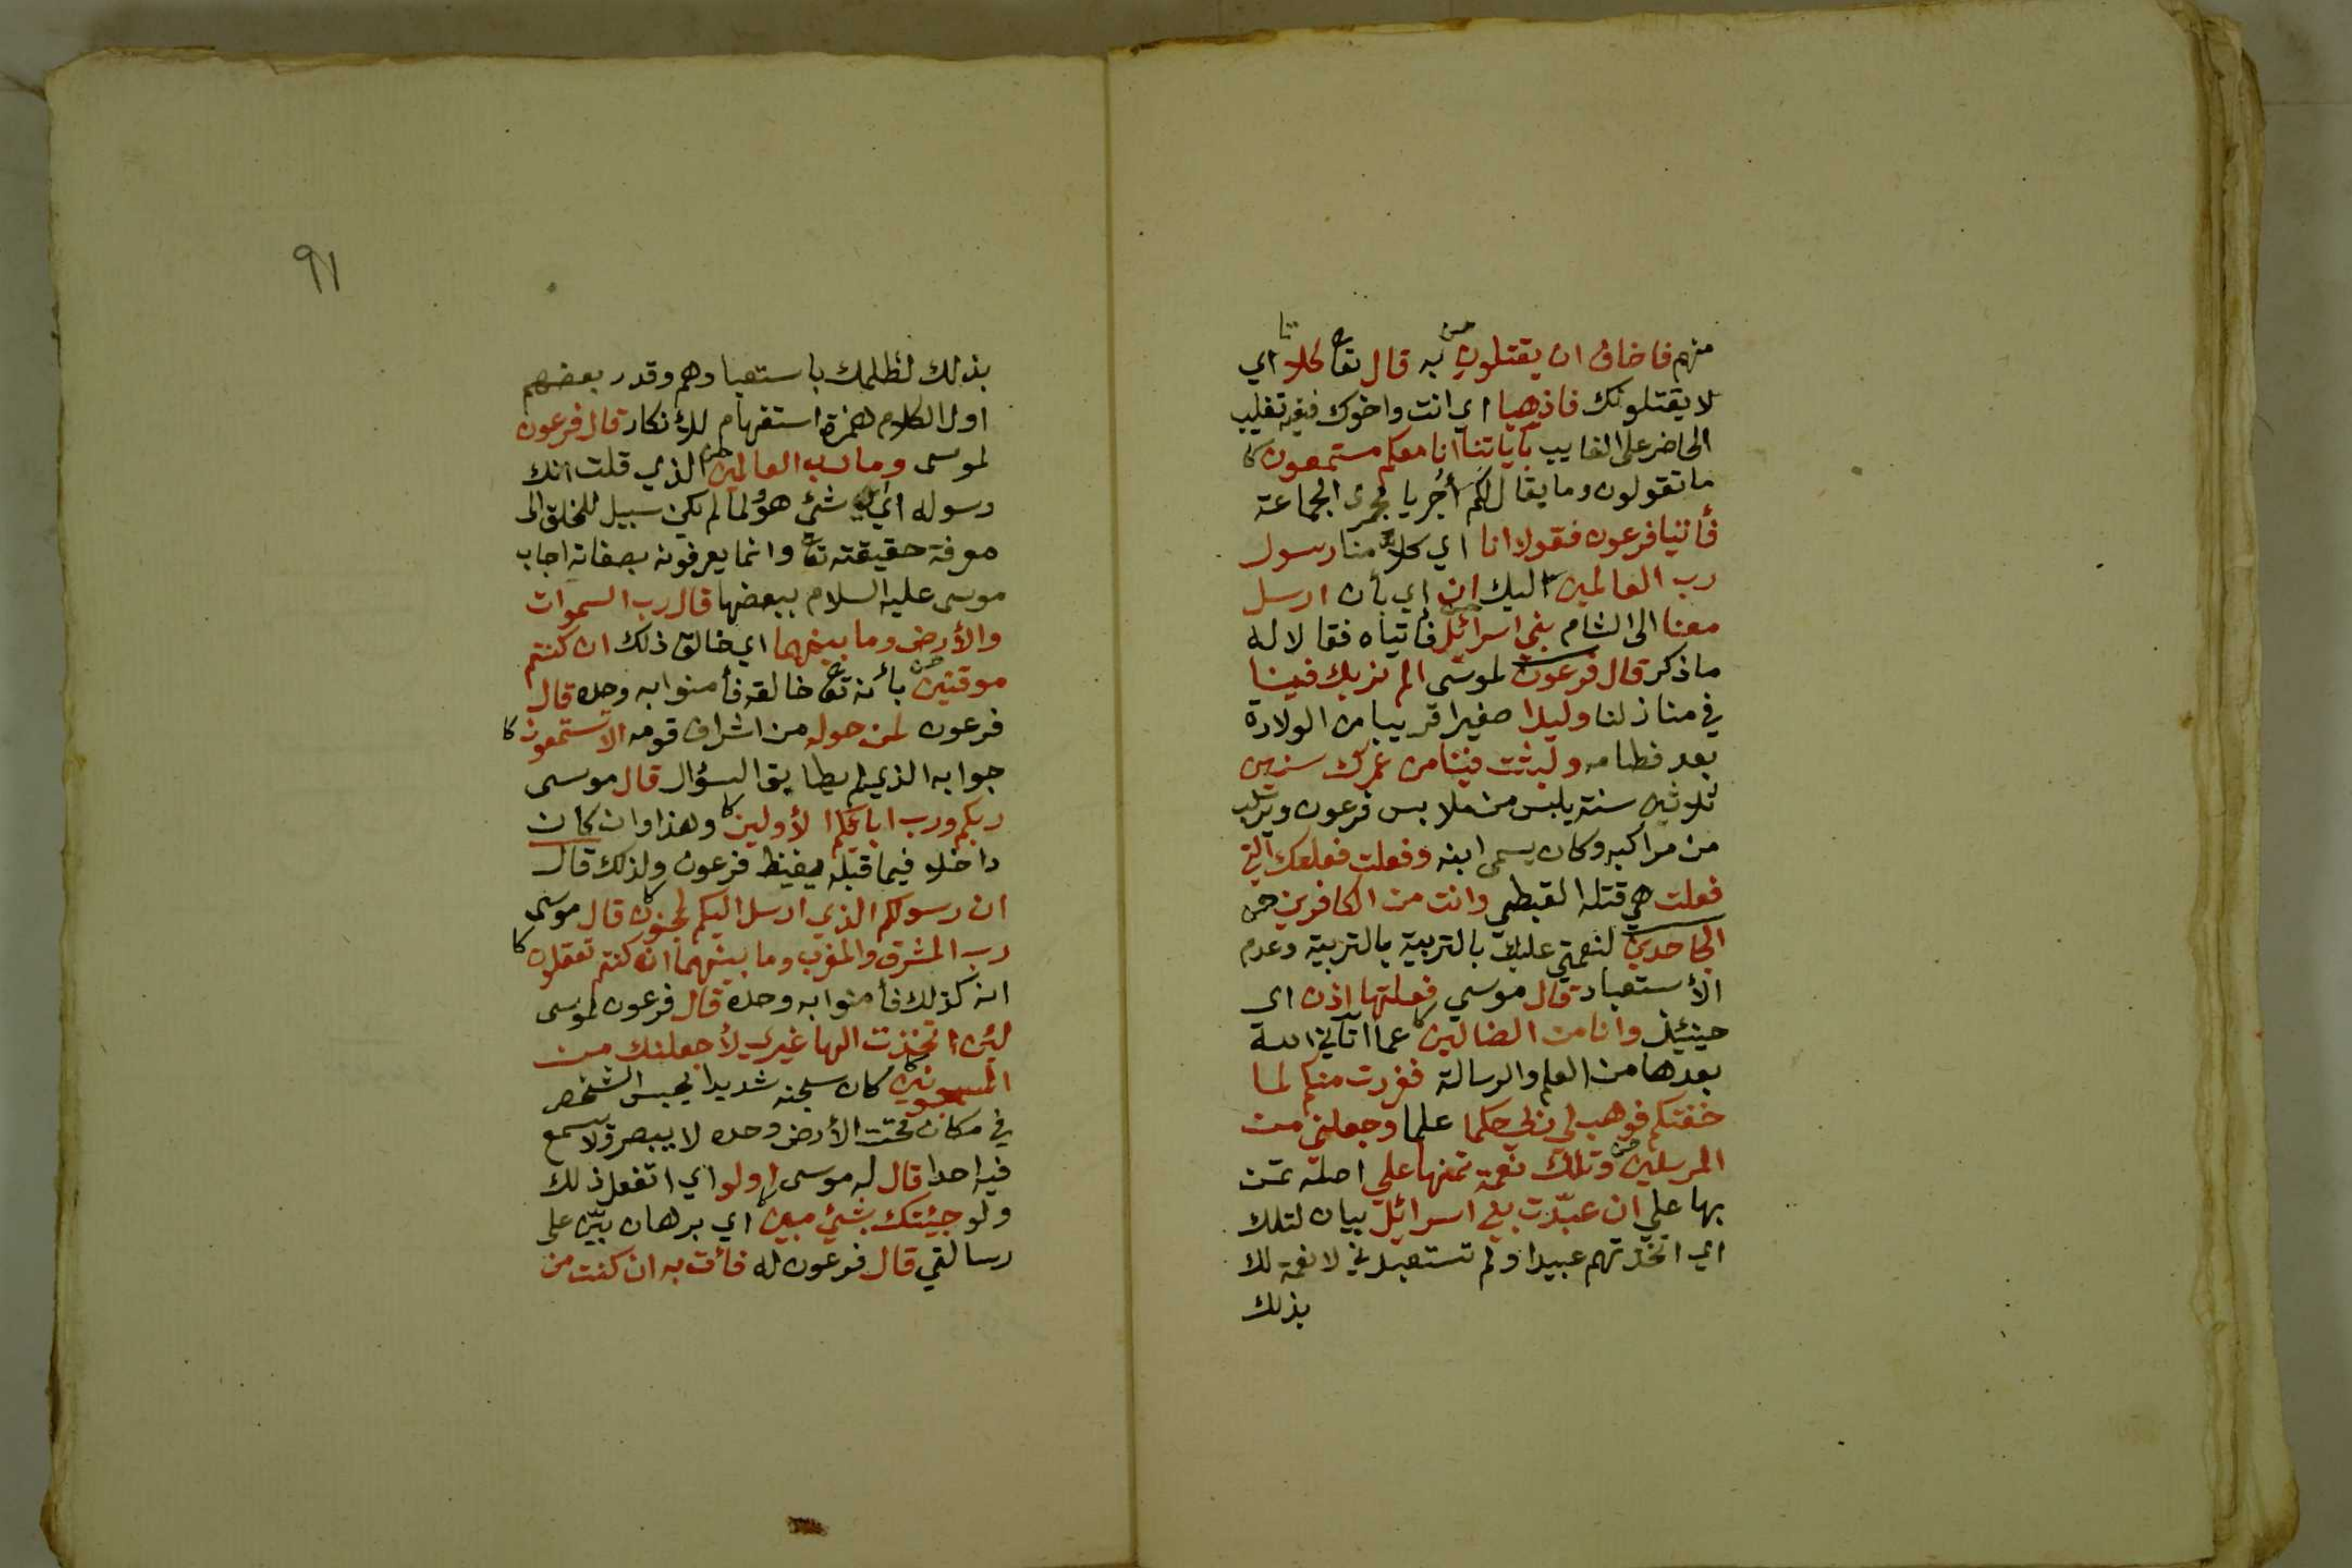 منهم فاخاف ان يقتلون به قال تعا كلا اي
لا يقتلونك فاذهبا اي انت واخوك ففيه تغليب
الحاضر على الغايب بآياتنا انا معكم مستمعون
ما تقولون وما يقال لكم أجريا مجرى الجماعة
فأتيا فرعون فقولا انا اي كلا منا رسول
رب العالمين اليك ان اي بأن ارسل
معنا الى الشام بني اسرائل فاتياه فقالا له
ما ذكر قال فرعون لموسى الم نربك فينا
في منازلنا وليدا صغيرا قريبا من الولادة
بعد فطامه ولبثت فينا من عمرك سنين
ثلاثين سنة يلبس من ملابس فرعون ويركب
من مراكبه وكان يسمى ابنه وفعلت فعلتك التي
فعلت هي قتله القبطي وانت من الكافرين
الجاحدين لنعمتي عليك بالتربية بالتربية وعدم
الأستعباد قال موسى فعلتها اذن اى
حينئيذ وانا من الضالين عما آتاني الله
بعدها من العلم والرسالة ففررت منكم لما
خفتكم فوهب لى ربي حكما علما وجعلني من
المرسلين وتلك نعمة تمنها علي اصله تمن
بها علي ان عبّدت بني اسرائل بيان لتلك
اي اتخذتهم عبيدا ولم تستعبدني لا نعمة لك
بذلك
٩١
بذلك لظلمك باستعبادهم وقدر بعضهم
اول الكلام همزة استفهام للأنكار قال فرعون
لموسى وما رب العالمين الذي قلت انك
رسوله اي شئ هو ولما لم يكن سبيل للخلق الى
معرفة حقيقته تعا وانما يعرفونه بصفاته اجاب
موسى عليه السلام ببعضها قال رب السموات
والأرض وما بينهما اي خالق ذلك ان كنتم
موقنين بأنه تعا خالقه فأمنوا به وحده قال
فرعون لمن حوله من اشراف قومه الا تستمعون
جوابه الذي لم يطابق السؤال قال موسى
ربكم ورب ابايكم الأولين وهذا وان كان
داخلا فيما قبله يغيظ فرعون ولذلك قال
ان رسولكم الذي ارسل اليكم لمجنون قال موسى
رب المشرق والمغرب وما بينهما ان كنتم تعقلون
انه كذلك فأمنوا به وحده قال فرعون لموسى
لئن اتخذت الها غيري لأجعلنك من
المسجونين كان سجنه شديدا يحبس الشخص
في مكان تحت الأرض وحده لا يبصر ولا يسمع
فيه احدا قال له موسى اولو اي اتفعل ذلك
ولو جيئتك بشئ مبين اي برهان بيّن على
رسالتي قال فرعون له فائت به ان كنت من